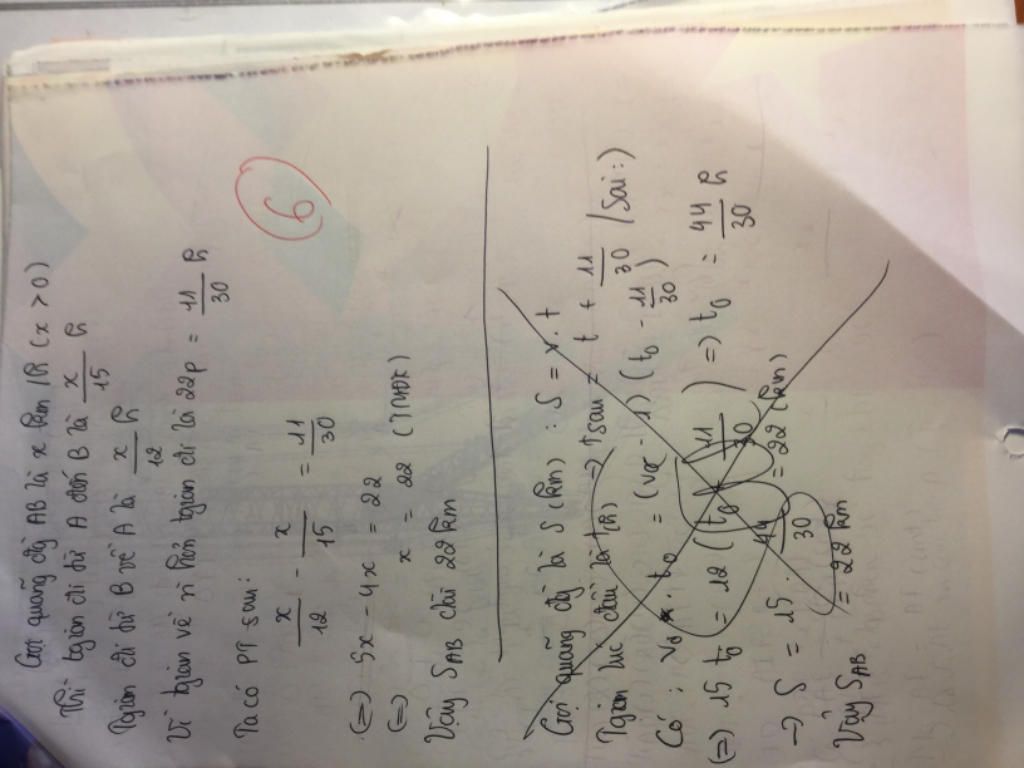 Gọi quãng đg AB là x km /h (x > 0)
Thì tgian đi từ A đến B là x/15 h
Tgian đi từ B về A là x/12 h
Vì tgian về nhiều hơn tgian đi là 22p = 11/30 h
Ta có PT sau:
x/12 - x/15 = 11/30
(=) 5x - 4x = 22
(=) x = 22 (TMĐK)
Vậy SAB dài 22 km
6
Gọi quãng đg là S (km) : S = v.t
Tgian lúc đầu là t(h) → tsau = t + 11/30 /Sai:)
Có : v0 . t0 = (t0 - 11/30)
(=) 15 t0 = 12 (t0 11/30) =) t0 = 44/30 h
→ S = 15 . 44/30 = 22 (km)
Vậy SAB = 22 km